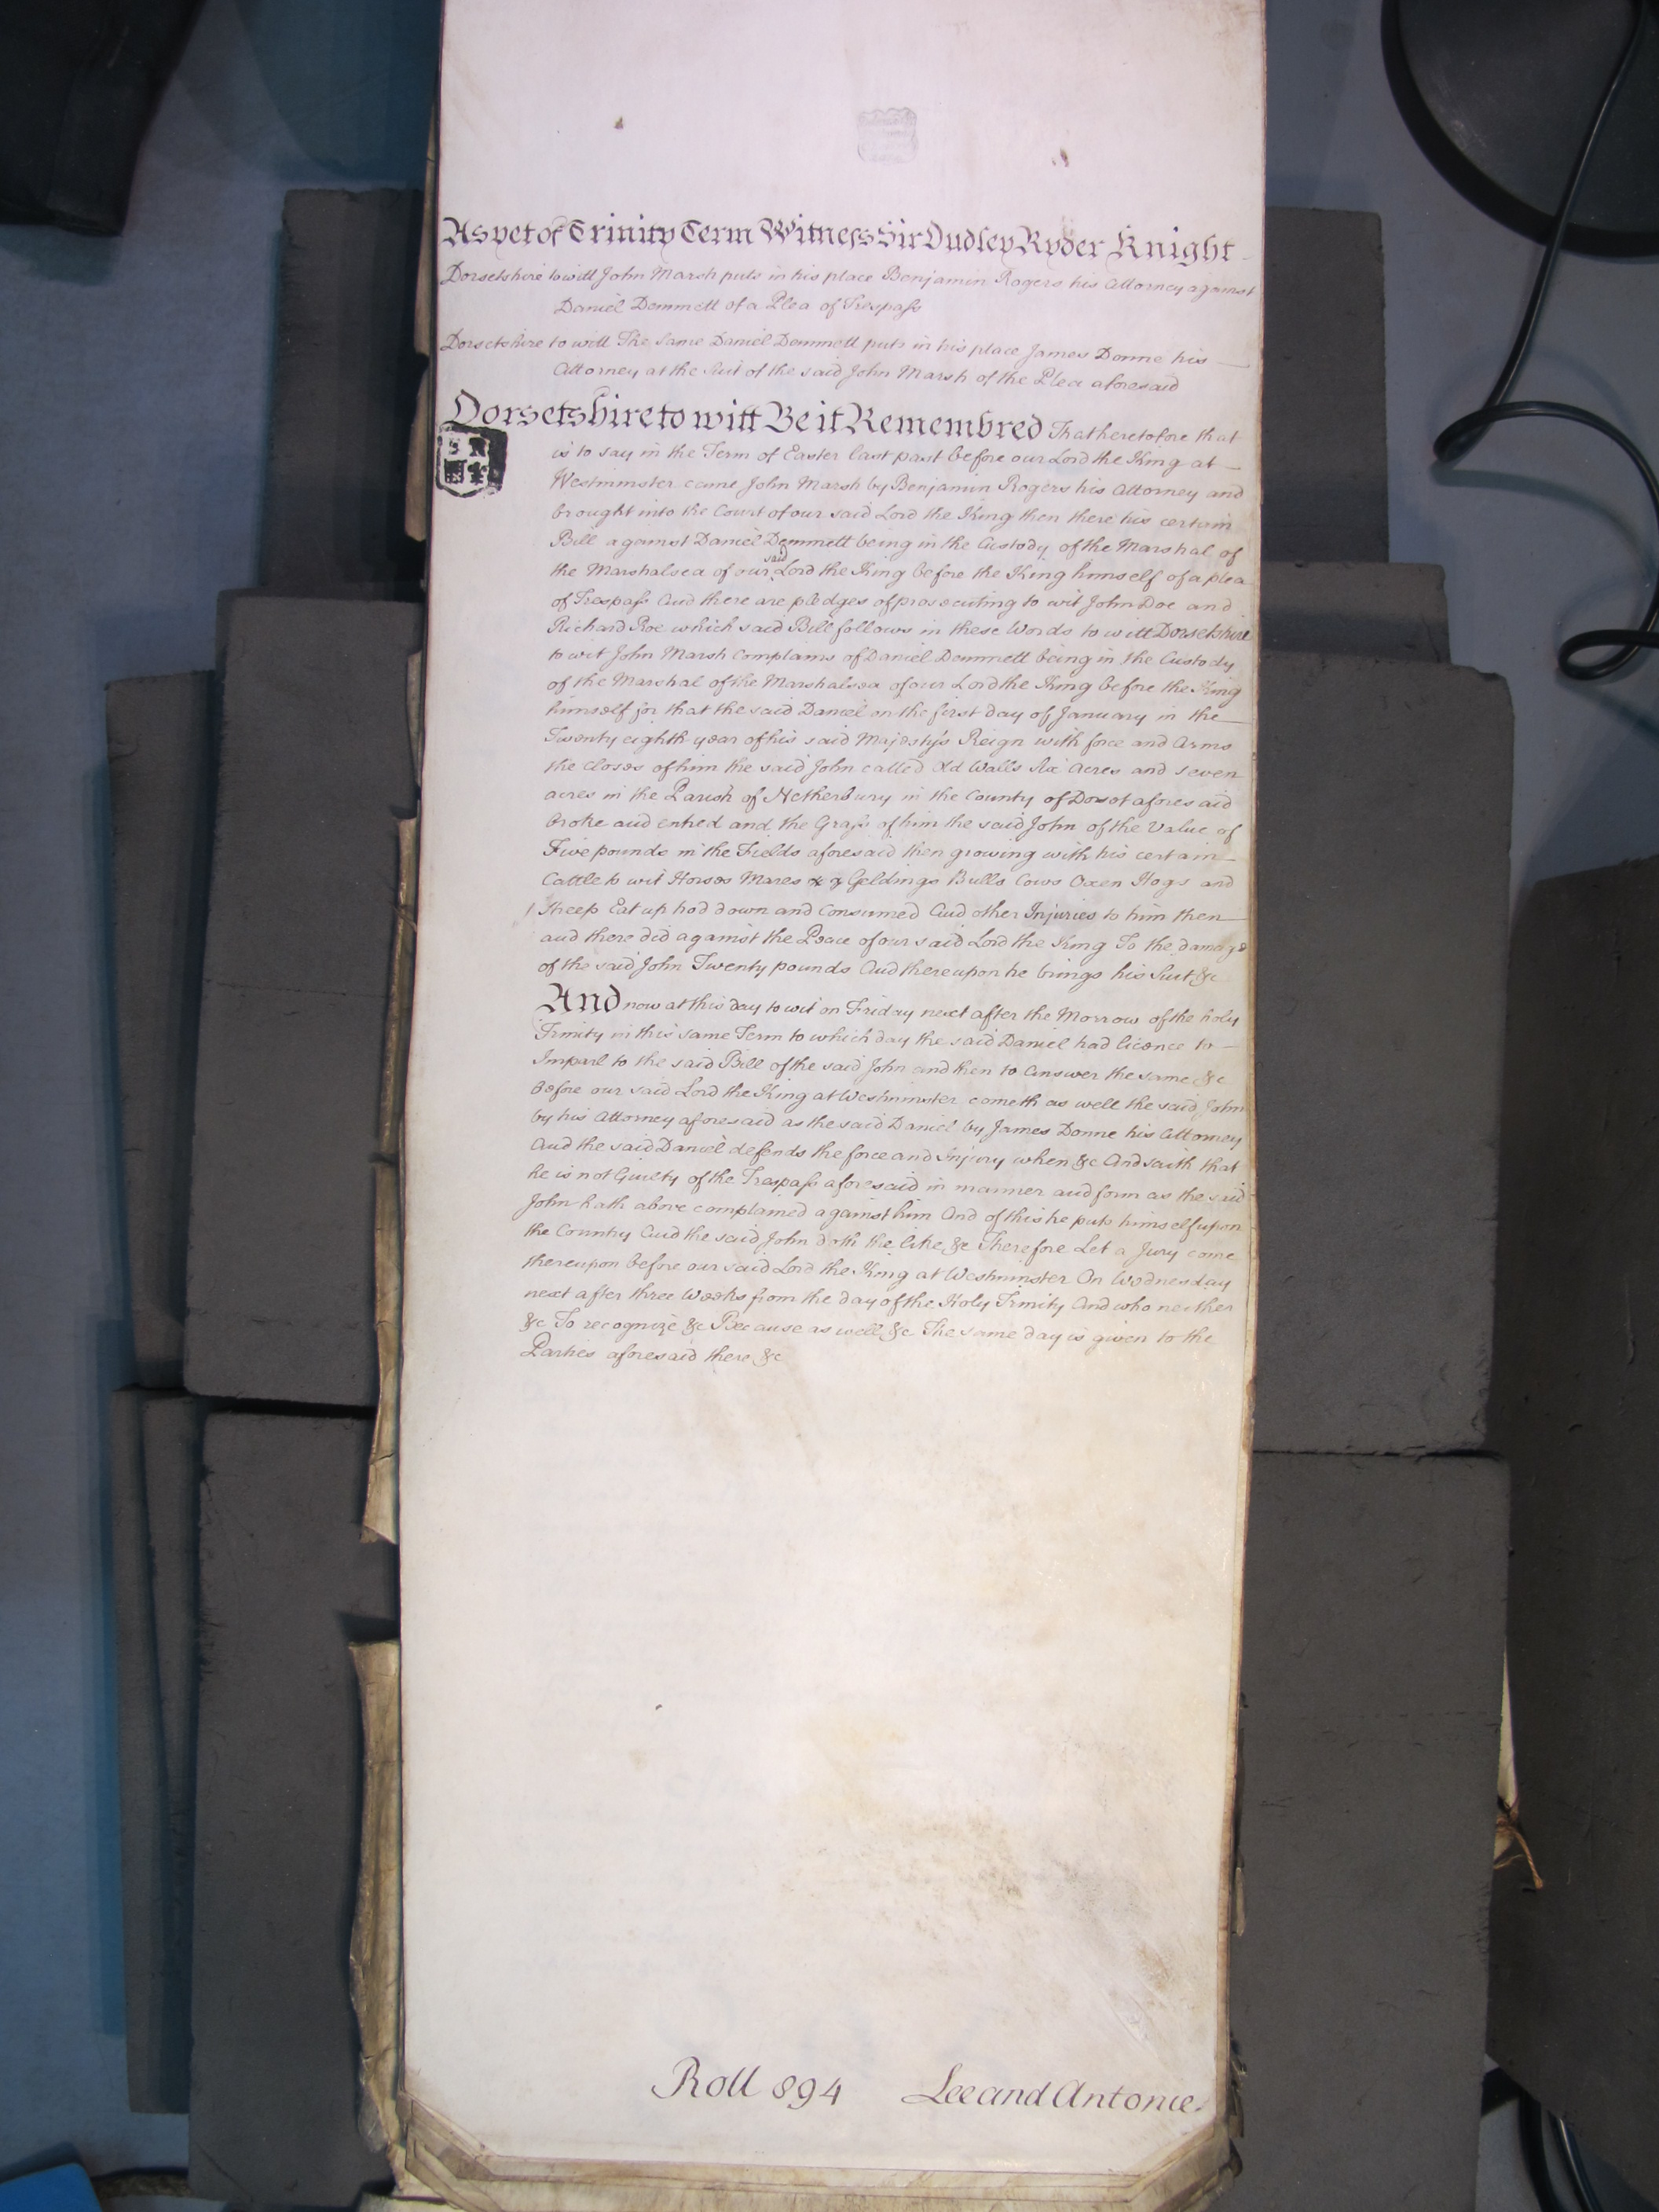 As yet of Trinity Term Witness Sir Dudley Ryder Knight
Dorsetshire to witt John Marsh puts in his place Benjamin Rogers his Attorney against
Daniel Demmett of a Plea of Trespass
Dorsetshire to witt The same Daniel Demmett puts in his place James Donne his
Attorney at the Suit of the said John Marsh of the Plea aforesaid
Dorsetshire to witt Be it Remembred That heretofore that
is to say in the Term of Easter last past before our Lord the King at
Westminster came John Marsh by Benjamin Rogers his Attorney and
brought into the Court of our said Lord the King then there his certain
Bill against Daniel Demmett being in the Custody of the Marshal of
the Marshalsea of our said Lord the King before the King himself of a plea
of Trespass And there are pledges of prosecuting to wit John Doe and
Richard Roe which said Bill follows in these Words to witt Dorsetshire
to wit John Marsh Complains of Daniel Demmett being in the Custody
of the Marshal of the Marshalsea of our Lord the King before the King
himself for that the said Daniel on the first day of January in the
Twenty eighth year of his said Majesty's Reign with force and Arms
the Closes of him the said John called Old Walls Six Acres and seven
acres in the Parish of Netherbury in the County of Dorset aforesaid
broke and entred and the Grass of him the said John of the Value of
Five pounds in the Fields aforesaid then growing with his certain
Cattle to wit Horses Mares Geldings Bulls Cows Oxen Hogs and
Sheep Eat up trod down and Consumed And other Injuries to him then
and there did against the Peace of our said Lord the King To the damage
of the said John Twenty pounds And thereupon he brings his Suit &c
And now at this day to wit on Friday next after the Morrow of the holy
Trinity in this same Term to which day the said Daniel had licence to
Imparl to the said Bill of the said John and then to Answer the same &c
Before our said Lord the King at Westminster cometh as well the said John
by his Attorney aforesaid as the said Daniel by James Donne his Attorney
And the said Daniel defends the force and Injury when &c And saith that
he is not Guilty of the Trespass aforesaid in manner and form as the said
John hath above complained against him And of this he puts himself upon
the Country And the said John doth the like &c Therefore Let a Jury come
thereupon before our said Lord the King at Westminster On Wednesday
next after three Weeks from the day of the Holy Trinity And who neither
&c To recognize &c Because as well &c The same day is given to the
Parties aforesaid there &c
Roll 894 Lee and Antonie